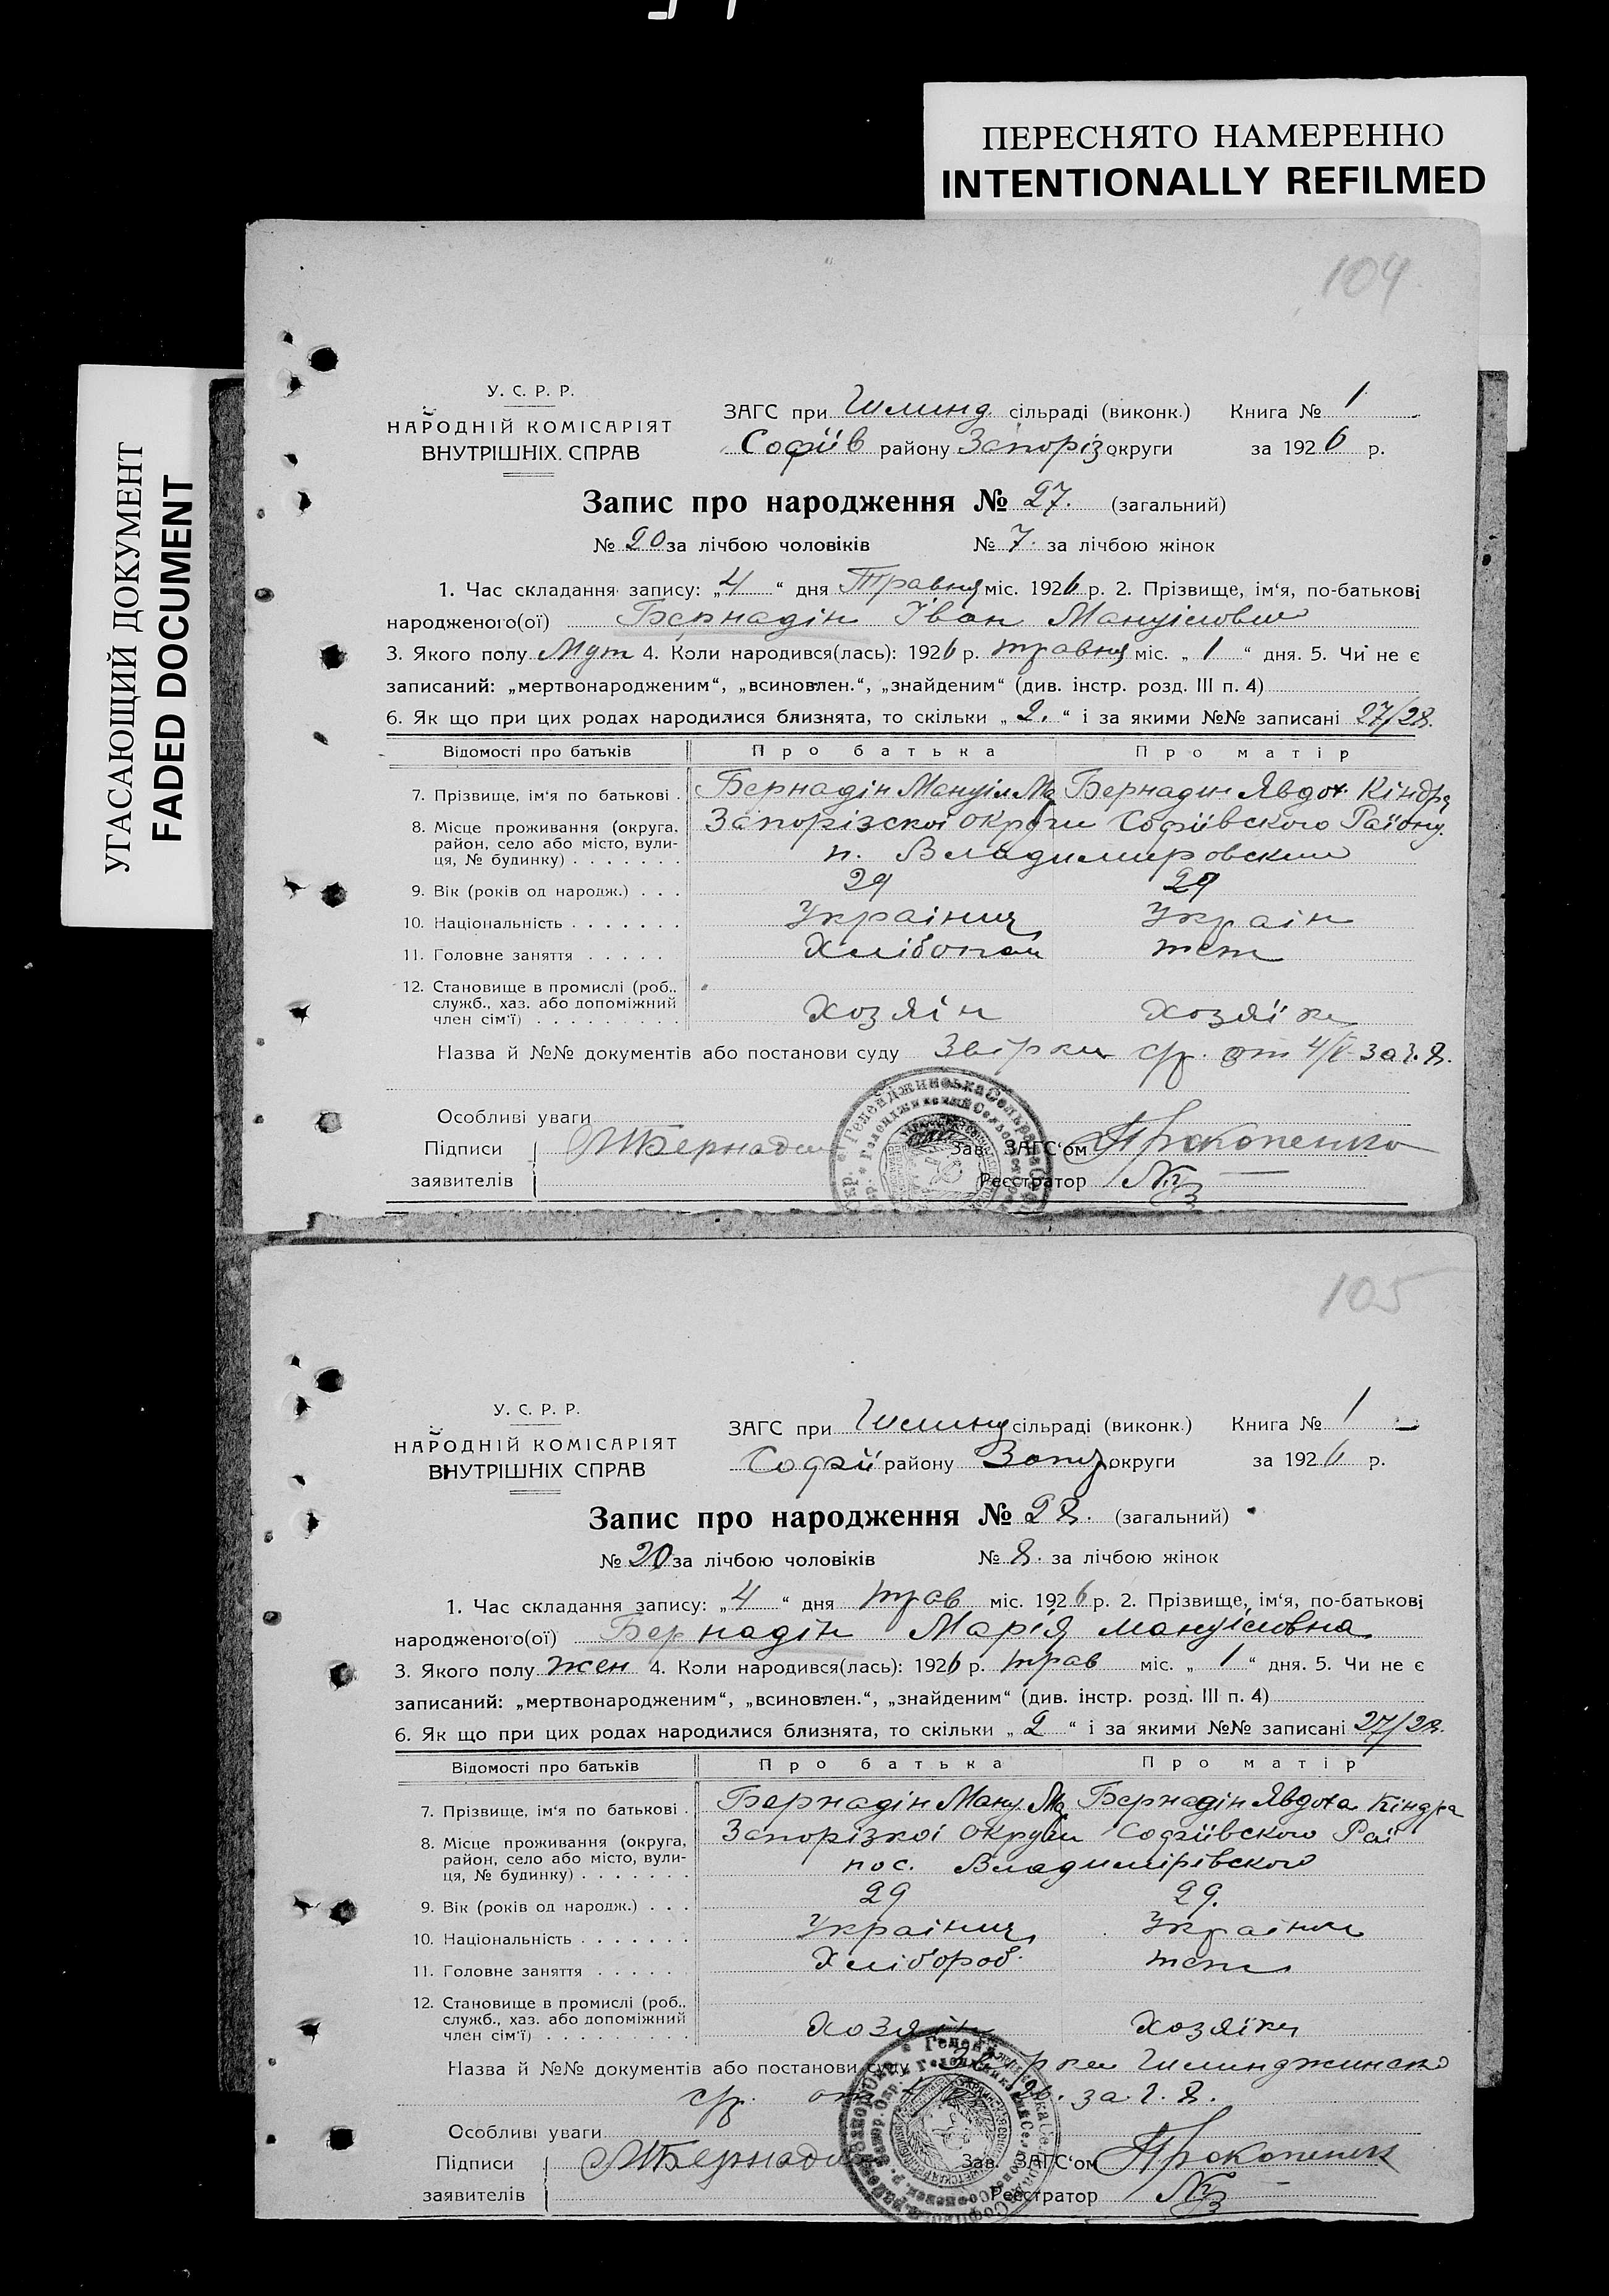 ПЕРЕСНЯТО НАМЕРЕННО
INTENTIONALLY REFILMED
УГАСАЮЩИЙ ДОКУМЕНТ
FADED DOCUMENT
104
У. С. Р. Р.
НАРОДНІЙ КОМІСАРІЯТ
ВНУТРІШНІХ СПРАВ
ЗАГС при сільраді (виконк.) Книга № 1
Софіїв району Запоріз округи за 1926 р.
Запис про народження № 27. (загальний)
№ 20 за лічбою чоловіків № 7. за лічбою жінок
1. Час складання запису: „4“ дня Травня міс. 1926 р. 2. Прізвище, ім'я, по-батькові
народженого(ої) Бернадін Іван Мануілович
3. Якого полу Муж 4. Коли народився(лась): 1926 р. травня міс. „1“ дня. 5. Чи не є
записаний: „мертвонародженим“, „всиновлен.“, „знайденим“ (див. інстр. розд. III п. 4)
6. Як що при цих родах народилися близнята, то скільки „2.“ і за якими №№ записані 27/28.
Відомості про батьків Про батька Про матір
7. Прізвище, ім'я по батькові . Бернадін Мануіл Ма Бернадин Явдох Кіндра
8. Місце проживання (округа, район, село або місто, вулиця, № будинку) . . . . . . . Запорізскоі округи Софіівского Району
п. Владимировский
9. Вік (років од народж.) . . . 29 29
10. Національність . . . . . . . Украіниц Украін
11. Головне заняття . . . . . Хлібопаш
12. Становище в промислі (роб.. служб., хаз. або допоміжний член сім'ї) . . . . . . . . . Хозяін Хозяїка
Назва й №№ документів або постанови суду ср. от 4/V за ч. 8.
Особливі уваги
Підписи заявителів М Бернадин
Зав. ЗАГС'ом Прокопенко
Реєстратор
105
У. С. Р. Р.
НАРОДНІЙ КОМІСАРІЯТ
ВНУТРІШНІХ СПРАВ
ЗАГС при сільраді (виконк.) Книга № 1
Софії району Запор округи за 1926 р.
Запис про народження № 28. (загальний)
№ 20 за лічбою чоловіків № 8. за лічбою жінок
1. Час складання запису: „4“ дня трав міс. 1926 р. 2. Прізвище, ім'я, по-батькові
народженого(ої) Бернадін Марія Мануіловна
3. Якого полу Жен 4. Коли народився(лась): 1926 р. трав міс. „1“ дня. 5. Чи не є
записаний: „мертвонародженим“, „всиновлен.“, „знайденим“ (див. інстр. розд. III п. 4)
6. Як що при цих родах народилися близнята, то скільки „2“ і за якими №№ записані 27/28.
Відомості про батьків Про батька Про матір
7. Прізвище, ім'я по батькові . Бернадін Ману Ма Бернадін Явдоха Кіндра
8. Місце проживання (округа, район, село або місто, вулиця, № будинку) . . . . . . . Запорізкоі округи Софіівского Раї
пос. Владимірівского
9. Вік (років од народж.) . . . 29 29.
10. Національність . . . . . . . Украіниц Украінка
11. Головне заняття . . . . . Хлібороб.
12. Становище в промислі (роб.. служб., хаз. або допоміжний член сім'ї) . . . . . . . . . Хозяін Хозяїка
Назва й №№ документів або постанови суду
ср. от за ч. 8.
Особливі уваги
Підписи заявителів М Бернадин
Зав. ЗАГС'ом Прокопенко
Реєстратор